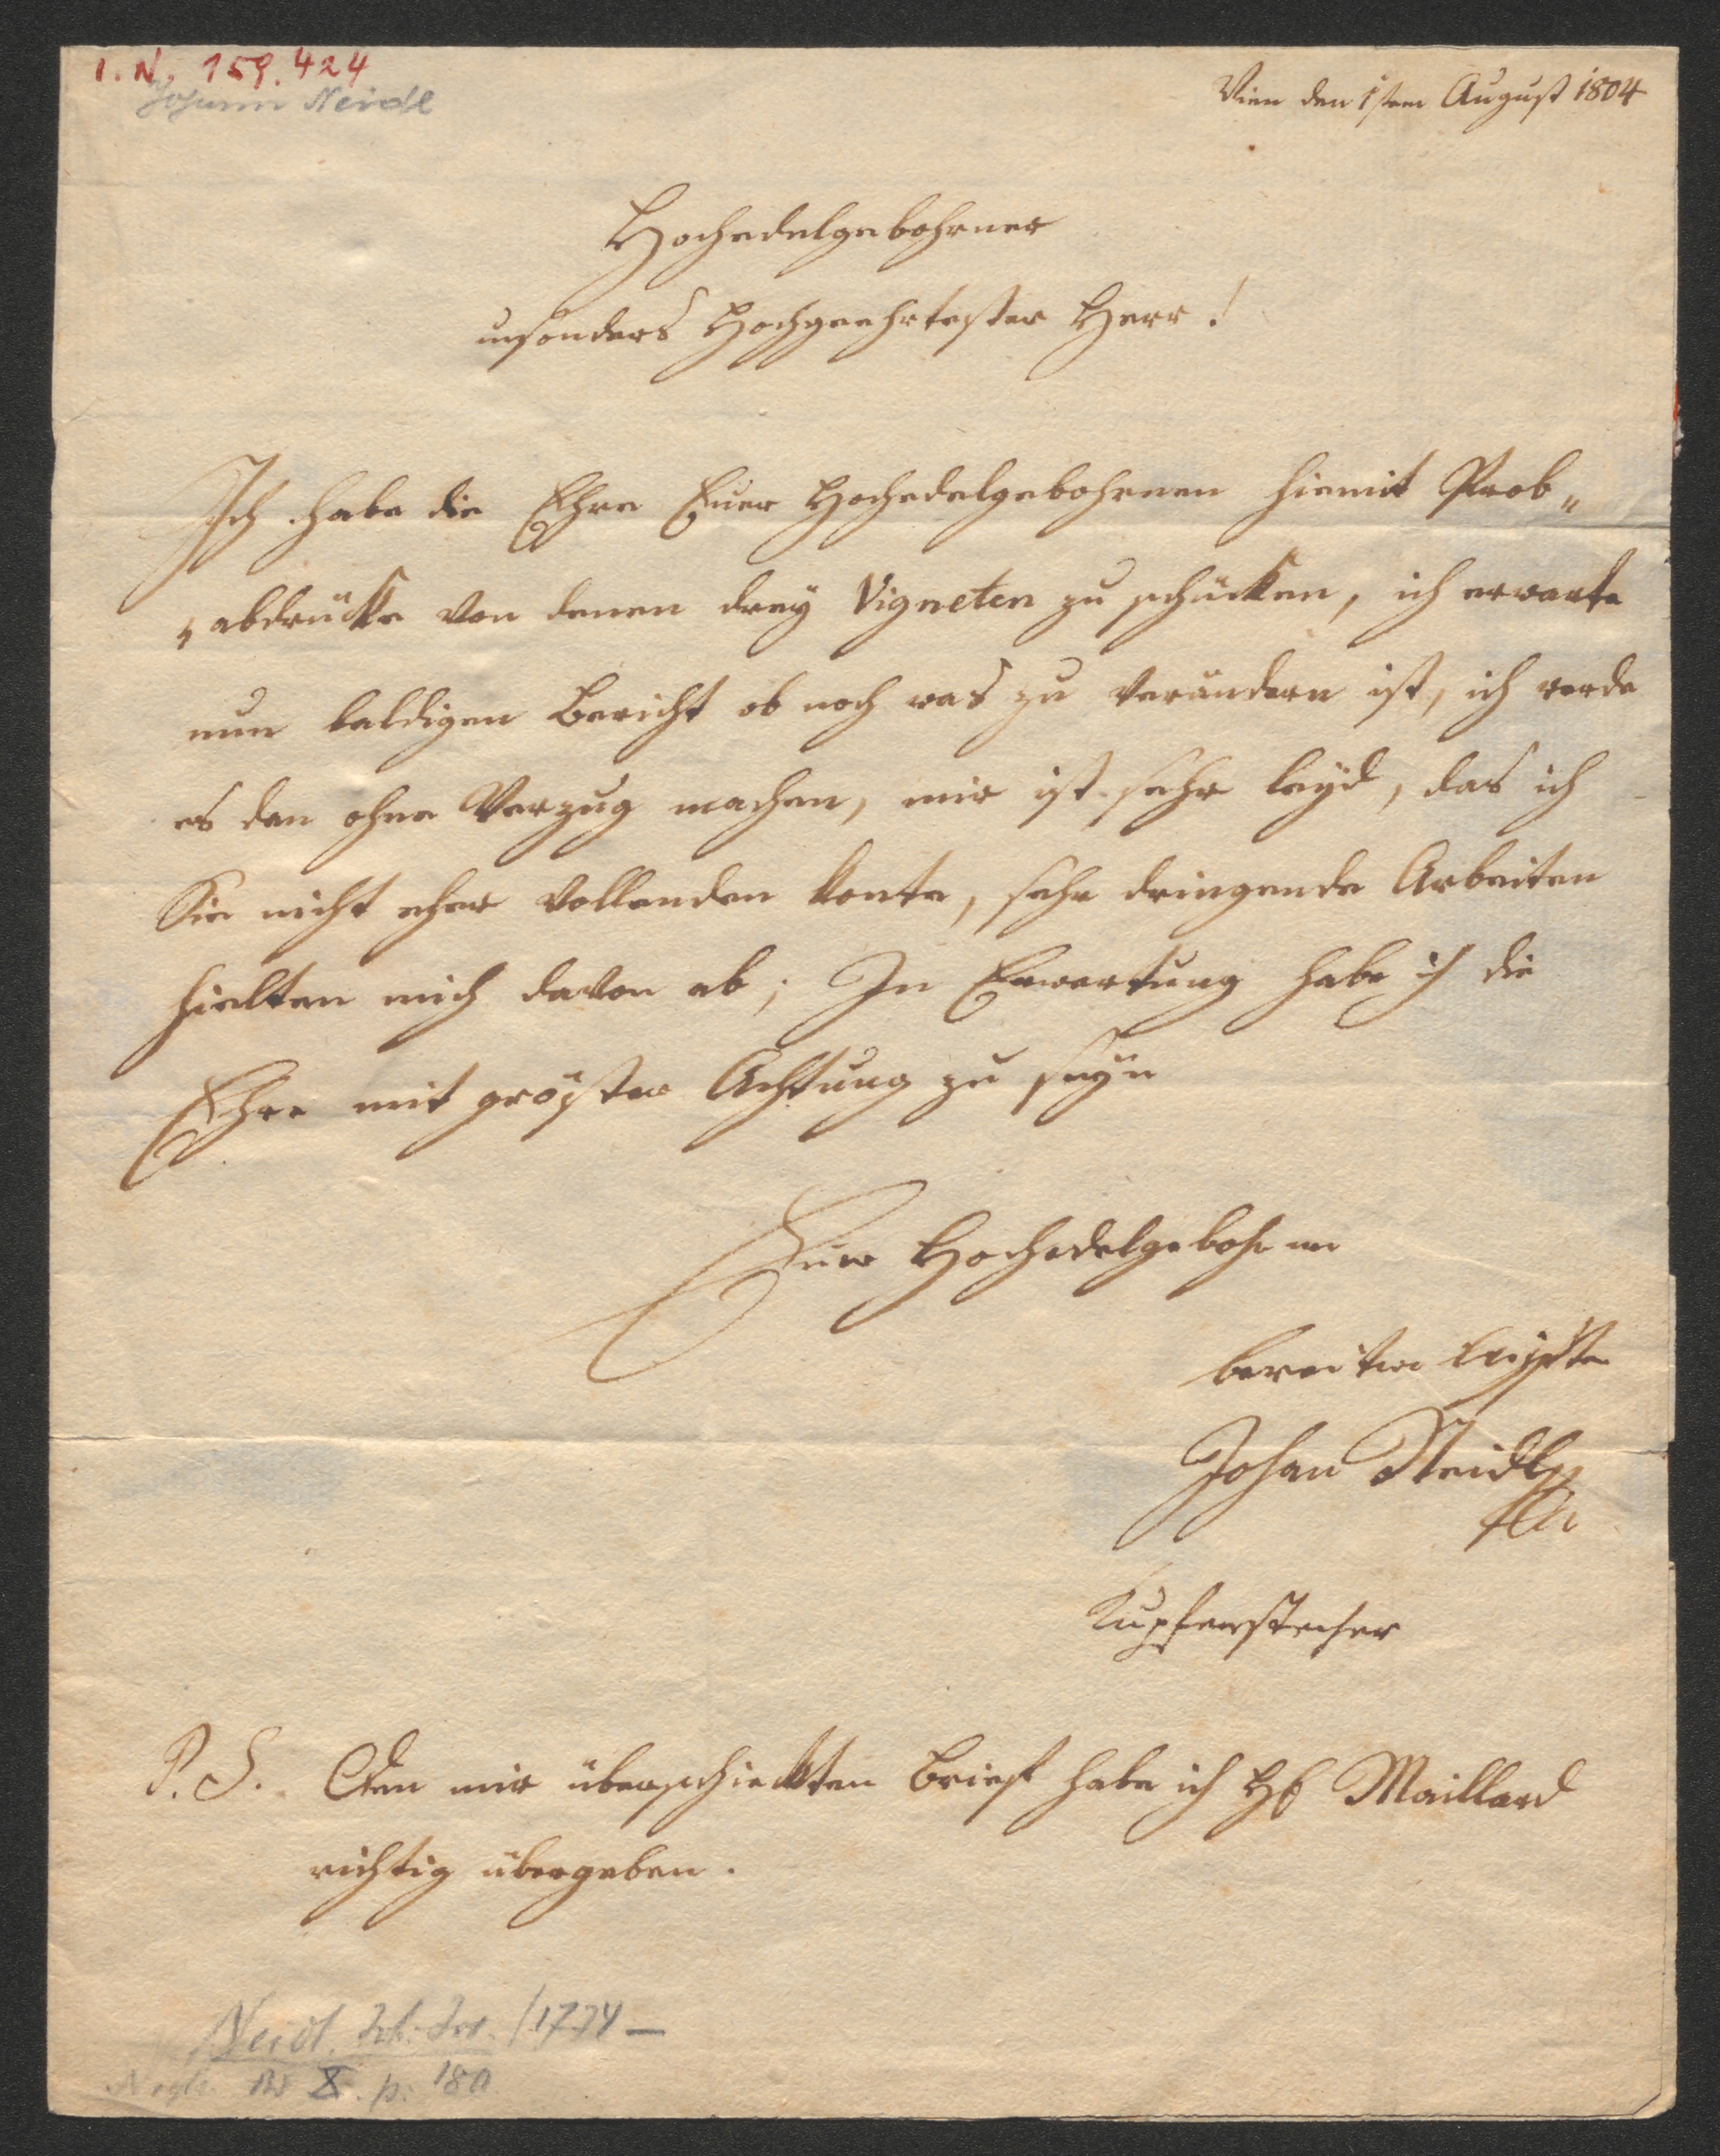 I. N. 159.424
Johann Neidl
Wien den 1sten August 1804
Hochedelgebohrner
insonders Hochgeehrtester Herr!
Ich habe die Ehre Euer Hochedelgebohrnen hiemit Prob„
abdrücke von denen drey Vigneten zu schücken, ich erwarte
nun baldigen Bericht ob noch was zu verändern ist, ich werde
es dan ohne Verzug machen, mir ist sehr leyd, das ich
Sie nicht eher vollenden konte, sehr dringende Arbeiten
hielten mich davon ab; In Erwartung habe ich die
Ehre mit gröster Achtung zu seyn
Euer Hochedelgebohrnen
bereitwilligster
Johan Neidl
Kupferstecher
P. S. Den mir überschickten Brief habe ich H Maillard
richtig übergeben.
Neidl. Joh. /1774 —
Bd X. p. 180